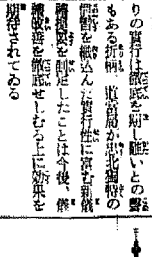 りの實行は徹底を期し難いとの聲
もある折柄、道當局が忠北獨特の
を織込んだ實行性に富む新儀
禮規範を制定したことは今後、儀
禮改善を徹底せしむる上に効果を
期待されてゐる